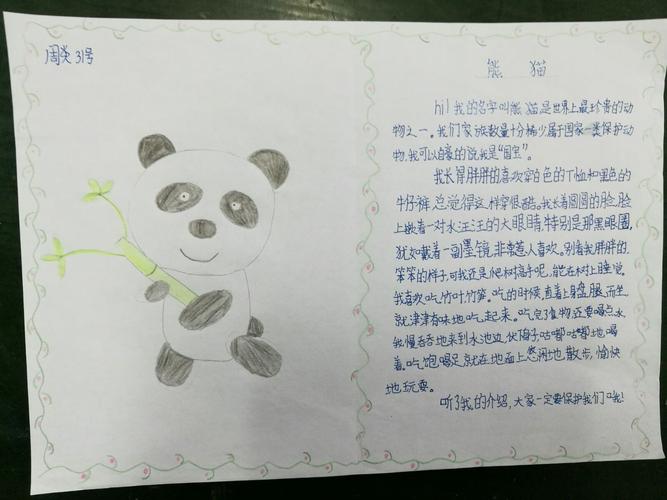 周炎 31号
熊猫
hi!我的名字叫熊猫是世界上最珍贵的动
物之一。我们家族数量十分稀少属于国家一类保护动
物,我可以自豪的说我是“国宝”。
我长得胖胖的喜欢穿白色的T恤和黑色的
牛仔裤,总觉得这样穿很酷。我长着圆圆的脸,脸
上嵌着一对水汪汪的大眼睛,特别是那黑眼圈,
犹如戴着一副墨镜,非常惹人喜欢。别看我胖胖的.
笨笨的样子,可我还是爬树高手呢,能在树上睡觉
我喜欢吃竹叶竹笋。吃的时候,直着上身盘腿而坐
就津津有味地吃起来。吃完了食物还要喝点水
我慢吞吞地来到水池边,伏下子咕嘟咕嘟地喝
着。吃饱喝足就在地面上悠闲地散步,愉快
地玩耍。
听了我的介绍,大家一定要保护我们哦!